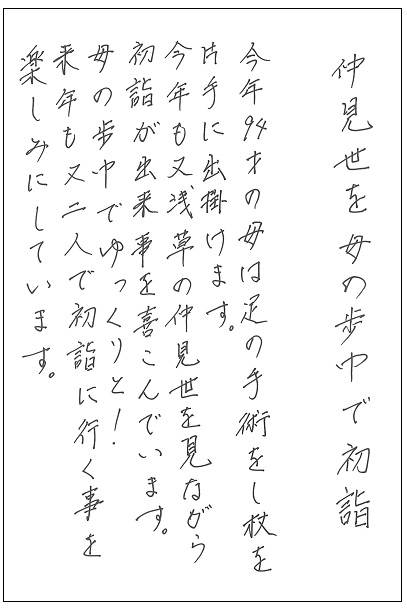 仲見世を母の歩巾で初詣
今年94才の母は足の手術をし杖を
片手に出掛けます。
今年も又浅草の仲見世を見ながら
初詣が出来事を喜こんでいます。
母の歩巾でゆっくりと!
来年も又二人で初詣に行く事を
楽しみにしています。